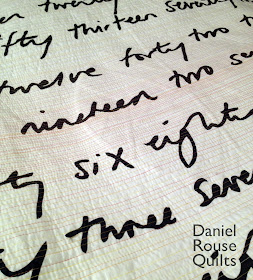 twenty
fifty thirteen seventy
twelve forty two
nineteen two
six eight
three seve
Daniel
Rouse
Quilts